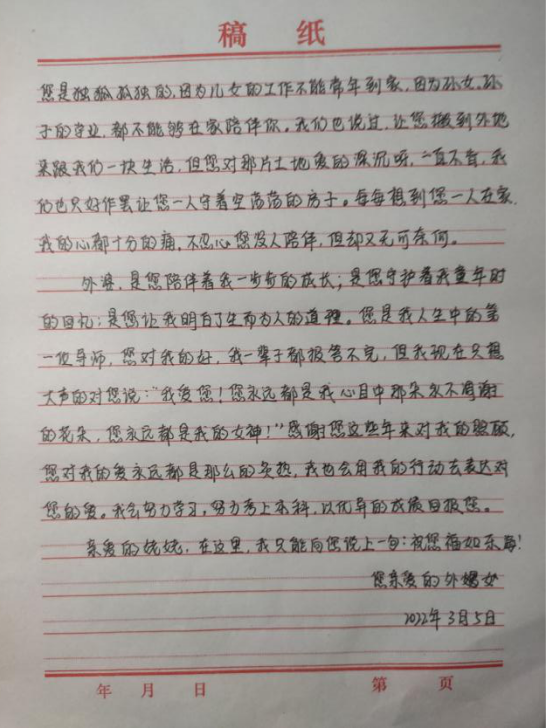 稿 纸
您是独孤孤独的,因为儿女的工作不能常年到家,因为孙女、孙
子的学业,都不能够在家陪伴你。我们也说过,让您搬到外地
来跟我们一块生活,但您对那片土地爱的深沉呀,一直不肯,我
们也只好作罢让您一人守着空荡荡的房子。每每想到您一人在家,
我的心都十分的痛,不忍心您没人陪伴,但却又无可奈何。
外婆,是您陪伴着我一步步的成长;是您守护着我童年时
的回忆;是您让我明白了生而为人的道理。您是我人生中的第
一位导师,您对我的好,我一辈子都报答不完,但我现在只想
大声的对您说:“我爱您!您永远都是我心目中那朵永不凋谢
的花朵,您永远都是我的女神!”感谢您这些年来对我的照顾,
您对我的爱永远都是那么的炙热,我也会用我的行动去表达对
您的爱。我会努力学习,努力考上本科,以优异的成绩回报您。
亲爱的姥姥,在这里,我只能向您说上一句:祝您福如东海!
您亲爱的外甥女
2022年3月5日
年 月 日 第 页